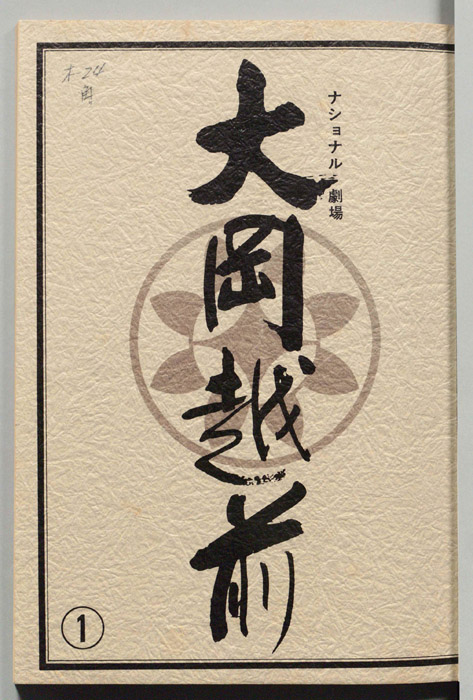 ナショナル劇場
大岡越前
木24
1